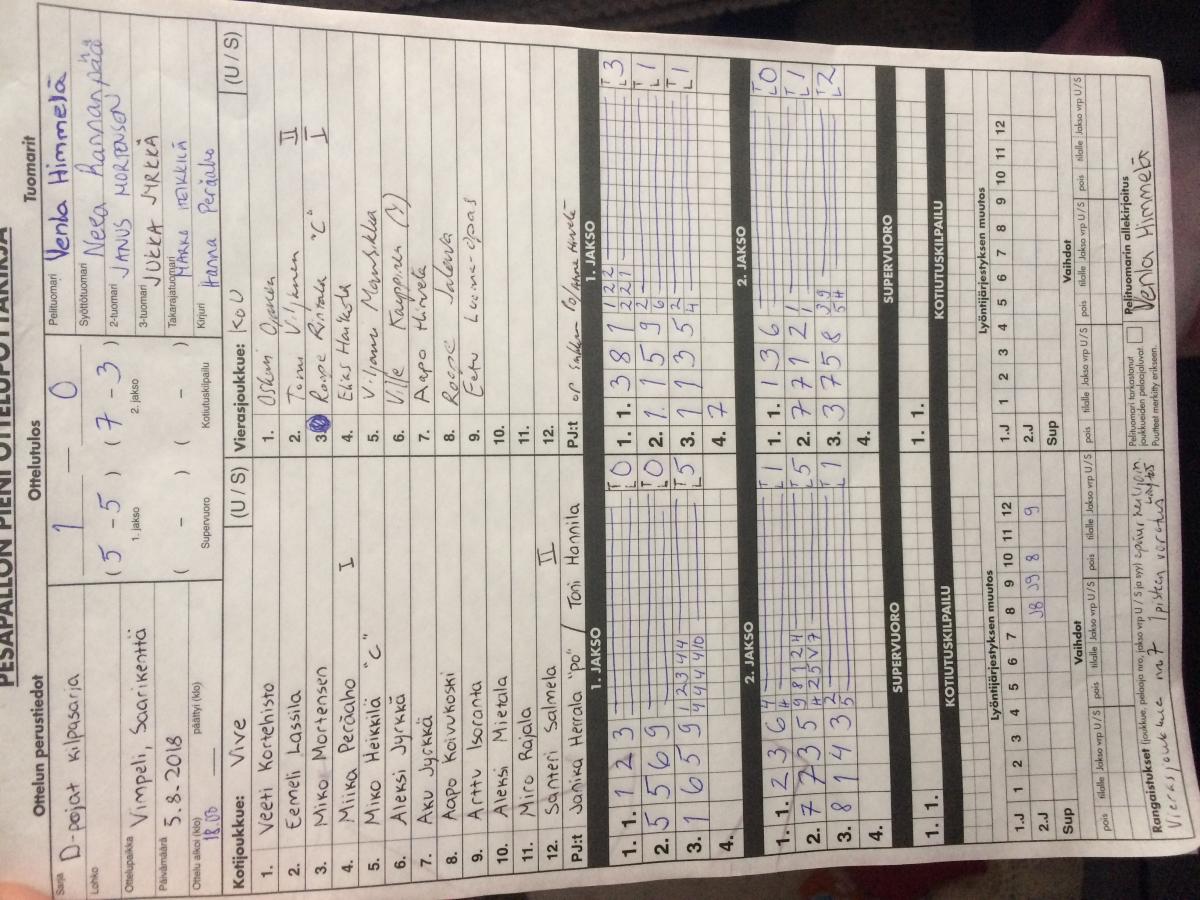 PESÄPALLON PIENI OTTELUPÖYTÄKIRJA
Ottelun perustiedot
Ottelutulos
Tuomarit
Sarja D-pojat kilpasarja
Lohko
Ottelupaikka Vimpeli, Saarikenttä
Päivämäärä 5.8.2018
Ottelu alkoi (klo) 18.00 päättyi (klo)
1 — 0
( 5 - 5 ) ( 7 - 3 )
1. jakso 2. jakso
( - ) ( - )
Supervuoro Kotiutuskilpailu
Pelituomari Venla Himmelä
Syöttötuomari Neea Rannanpää
2-tuomari JANUS MORTENSEN
3-tuomari JUKKA JYRKKÄ
Takarajatuomari MARKO HEIKKILÄ
Kirjuri Hanna Peräaho
Kotijoukkue: Vive (U / S)
1. Veeti Kortehisto
2. Eemeli Lassila
3. Miko Mortensen
4. Miika Peräaho I
5. Miko Heikkilä "C"
6. Aleksi Jyrkkä
7. Aku Jyrkkä
8. Aapo Koivukoski
9. Arttu Isoranta
10. Aleksi Mietala
11. Miro Rajala
12. Santeri Salmela II
PJ:t Janika Herrala "po" / Toni Hannila
Vierasjoukkue: KoU (U / S)
1. Oskari
2. Tomi Vilkmen II
3. Roope Rintala "C" I
4. Elias Harkola
5. Viljami Mansikka
6. Ville Kauppinen (Y)
7. Aapo Hirvelä
8. Roope
9. Eetu Luoma-opas
10.
11.
12.
PJ:t
1. JAKSO 1. JAKSO
1. 1. 1 2 3 T L 0
2. 5 5 6 9 T L 0
3. 1 6 5 9 1 2 3 4 4 4 T L 5
4.
1. 1. 3 8 1 T L 3
2. 1 1 5 9 T L 1
3. 1 1 3 5 T L 1
4. 7
2. JAKSO 2. JAKSO
1. 1. 2 3 6 T L 1
2. 7 7 3 5 T L 5
3. 8 1 4 3 T L 1
4.
1. 1. 1 3 6 T L 0
2. 7 7 1 2 T L 1
3. 3 7 5 8 T L 2
4.
SUPERVUORO SUPERVUORO
1. 1. 1. 1.
KOTIUTUSKILPAILU KOTIUTUSKILPAILU
Lyöntijärjestyksen muutos Lyöntijärjestyksen muutos
1.J 1 2 3 4 5 6 7 8 9 10 11 12
2.J J8 J9 8 9
Sup
1.J 1 2 3 4 5 6 7 8 9 10 11 12
2.J
Sup
Vaihdot Vaihdot
pois tilalle Jakso vrp U / S pois tilalle Jakso vrp U / S pois tilalle Jakso vrp U / S
pois tilalle Jakso vrp U / S pois tilalle Jakso vrp U / S pois tilalle Jakso vrp U / S
Rangaistukset (joukkue, pelaaja nro, jakso vrp U / S ja syy)
Pelituomari tarkastanut joukkueiden pelaajaluvat.
Puutteet merkitty erikseen.
Pelituomarin allekirjoitus
Venla Himmelä